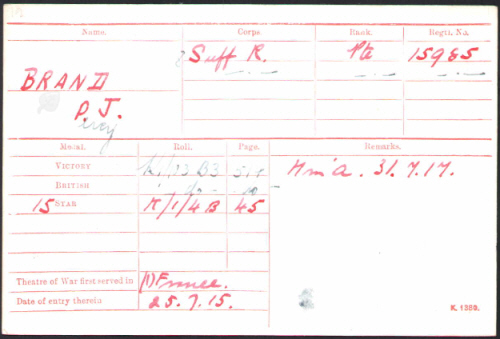 Name. Corps. Rank. Regtl. No.
Suff R. Pte 15985
BRAND
P. J.
Percy
Medal. Roll. Page. Remarks.
VICTORY K/1/13 B3
BRITISH do
15 STAR K/1/4B 45
Km'a. 31.7.17.
Theatre of War first served in (1) France.
Date of entry therein 25.7.15.
K. 1380.